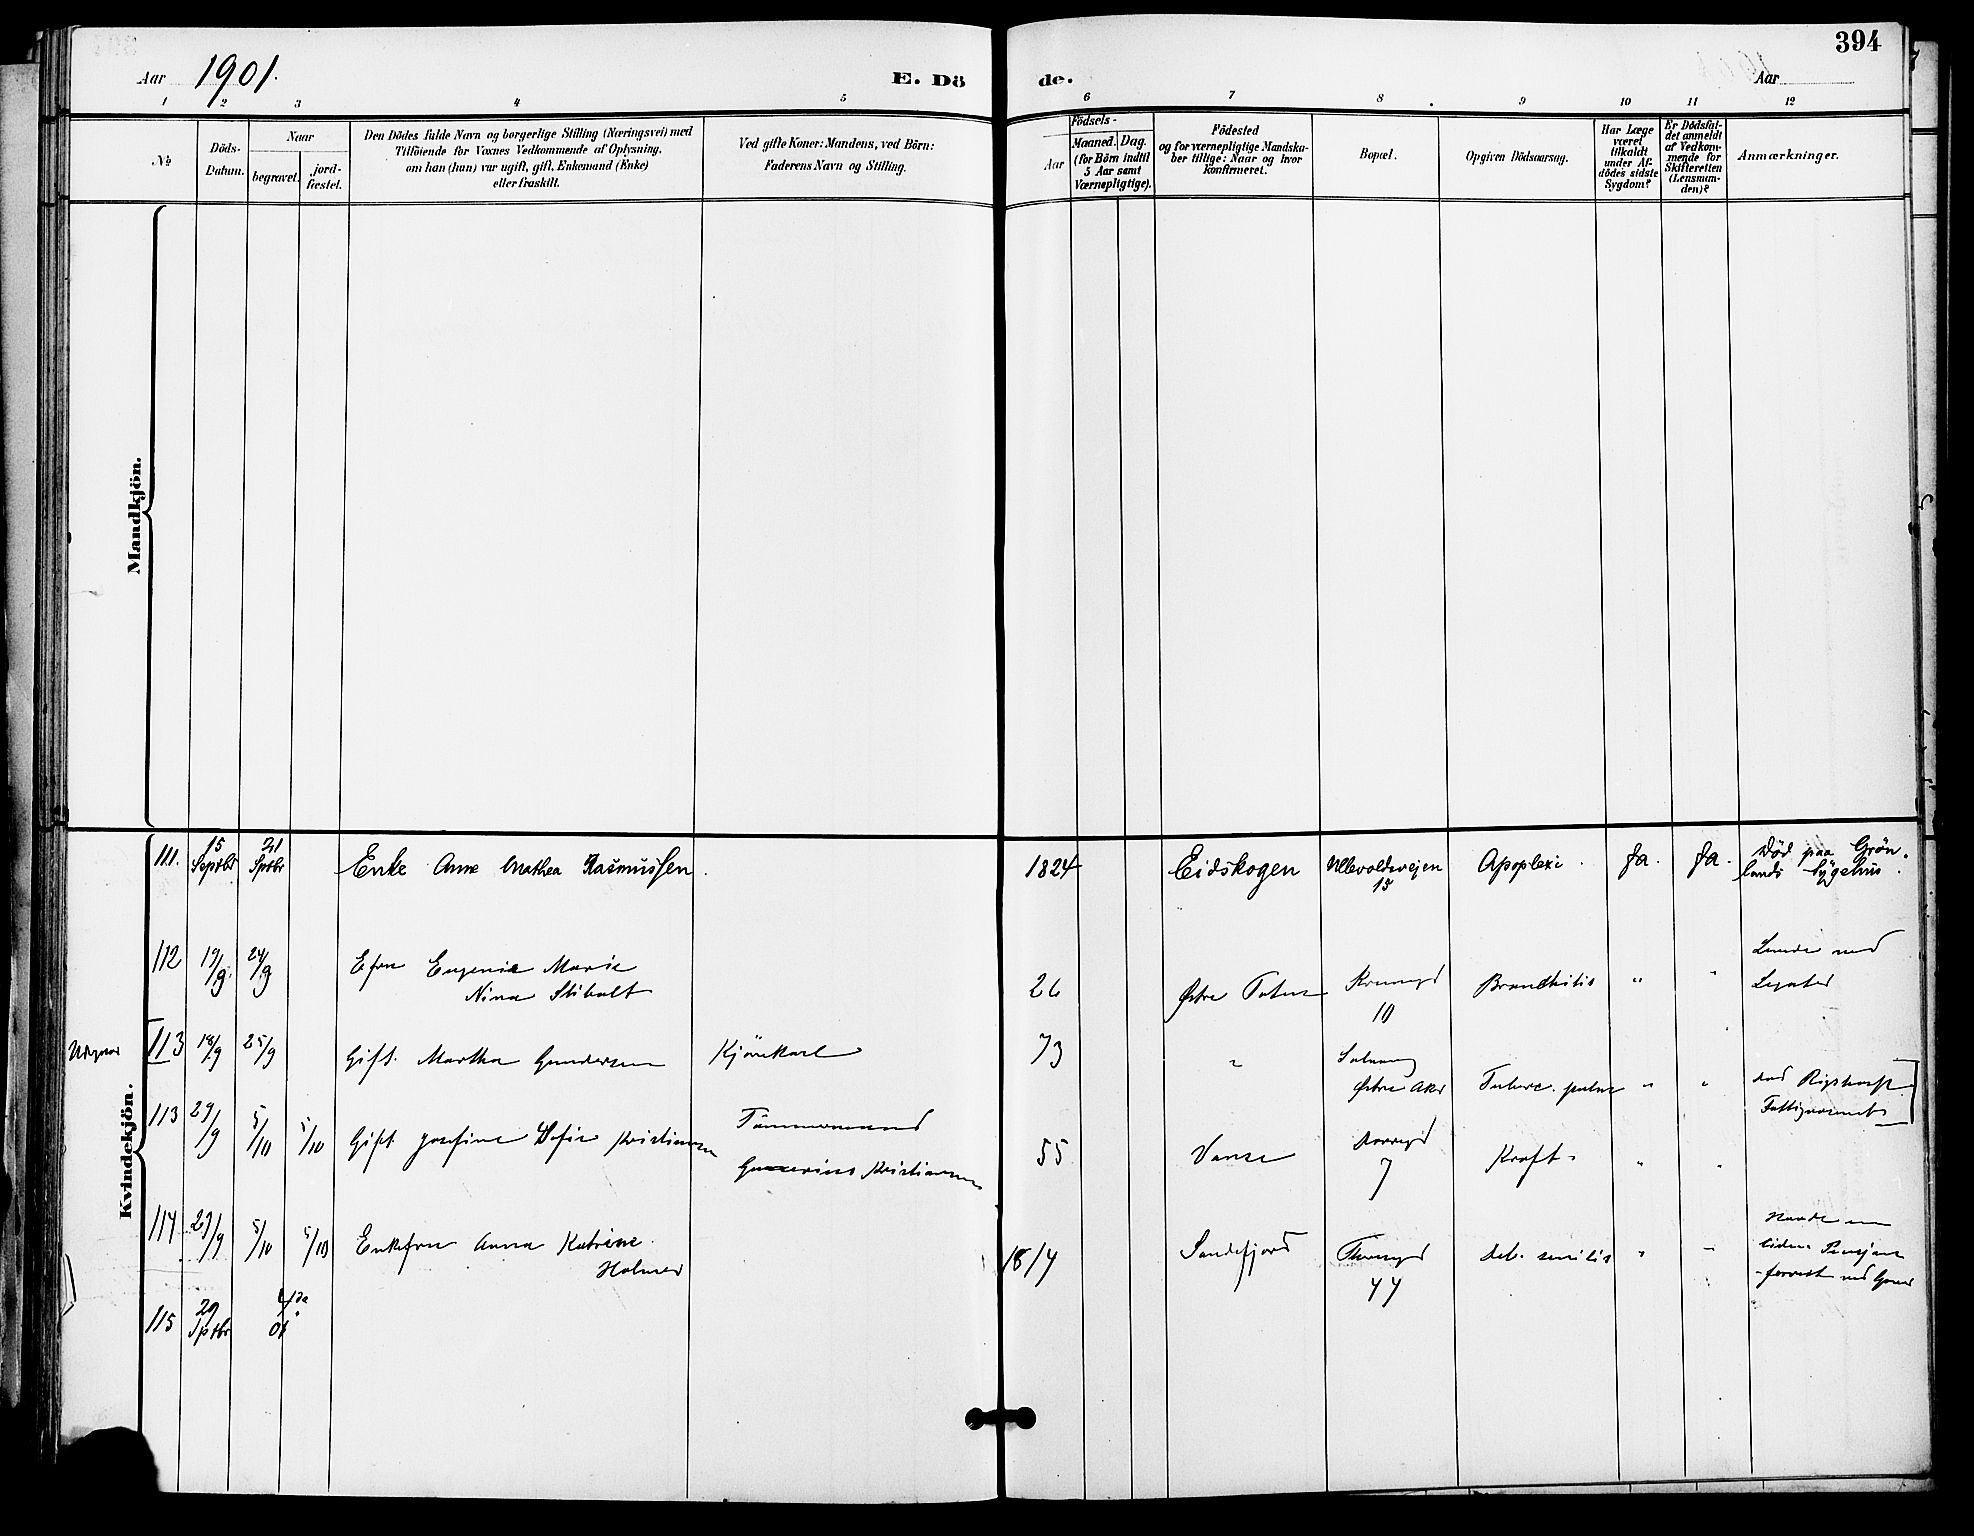 394
Aar 1901.
E. Dö de.
Aar
1 2 3 4 5 6 7 8 9 10 11 12
No
Döds-
Datum.
Naar
begravet.
jord-
fæstet.
Den Dödes fulde Navn og borgerlige Stilling (Næringsvei) med
Tilföiende for Voxnes Vedkommende af Oplysning,
om han (hun) var ugift, gift, Enkemand (Enke)
eller fraskilt.
Ved gifte Koner: Mandens, ved Börn:
Faderens Navn og Stilling.
Födsels-
Aar
Maaned. Dag.
(for Börn indtil
5 Aar samt
Værnepligtige).
Födested
og for værnepligtige Mandska-
ber tillige: Naar og hvor
konfirmeret.
Bopæl.
Opgiven Dödsaarsag.
Har Læge
været
tilkaldt
under Af-
dödes sidste
Sygdom?
Er Dödsfal-
det anmeldt
af Vedkom-
mende for
Skifteretten
(Lensman-
den)?
Anmærkninger.
Mandkjön.
Kvindekjön.
111. 15 Septbr 21 Sptbr Enke Anne Mathea Rasmussen. 1824 Eidskogen Ullevoldsvejen 15 Apoplexi. Ja. Ja. Død paa Grøn-
lands Sygehus.
112 19/9 24/9 Efru Eugenie Marie
Nina Stibolt 26 Østre 10 Bronchitis " "
Legated
113 18/9 25/9 Gift. Martha Gundersen Kjørekarl 73 "
Østre Aker Tuberc. pulm " "
113 29/9 5/10 5/10 Gift Josefine Sofie Kristiansen Tømmermand
Kristiansen 55 Vanse 7 Kræft " "
114 27/9 5/10 5/10 Enkefru Anna Katrine
Holmer 1814 Sandefjord 44 deb. senilis " "
115 29 Sptbr 4/10 01